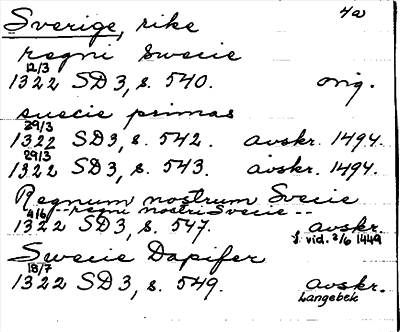 4a
Sverige, rike
regni Swecie
12/3
1322 SD 3, s. 540. orig.
suecie primas
29/3
1322 SD 3, s. 542. avskr. 1494.
29/3
1322 SD 3, s. 543. avskr. 1494.
Regnum nostrum Svecie
4/6 -- regni nostri Svecie --
1322 SD 3, s. 547. avskr.
f. vid. 2/6 1449
Swecie Dapifer
18/7
1322 SD 3, s. 549. avskr.
Langebek